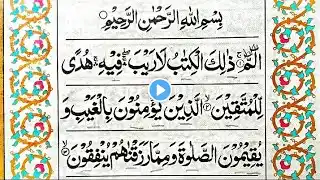 بِسْمِ اللهِ الرَّحْمٰنِ الرَّحِيْمِ
الٓمّٓ ۚ ذٰلِكَ الْكِتٰبُ لَا رَيْبَ ۛ فِيْهِ ۛ هُدًى
لِّلْمُتَّقِيْنَ ۙ۲ الَّذِيْنَ يُؤْمِنُوْنَ بِالْغَيْبِ وَ
يُقِيْمُوْنَ الصَّلٰوةَ وَمِمَّا رَزَقْنٰهُمْ يُنْفِقُوْنَ ۙ۳